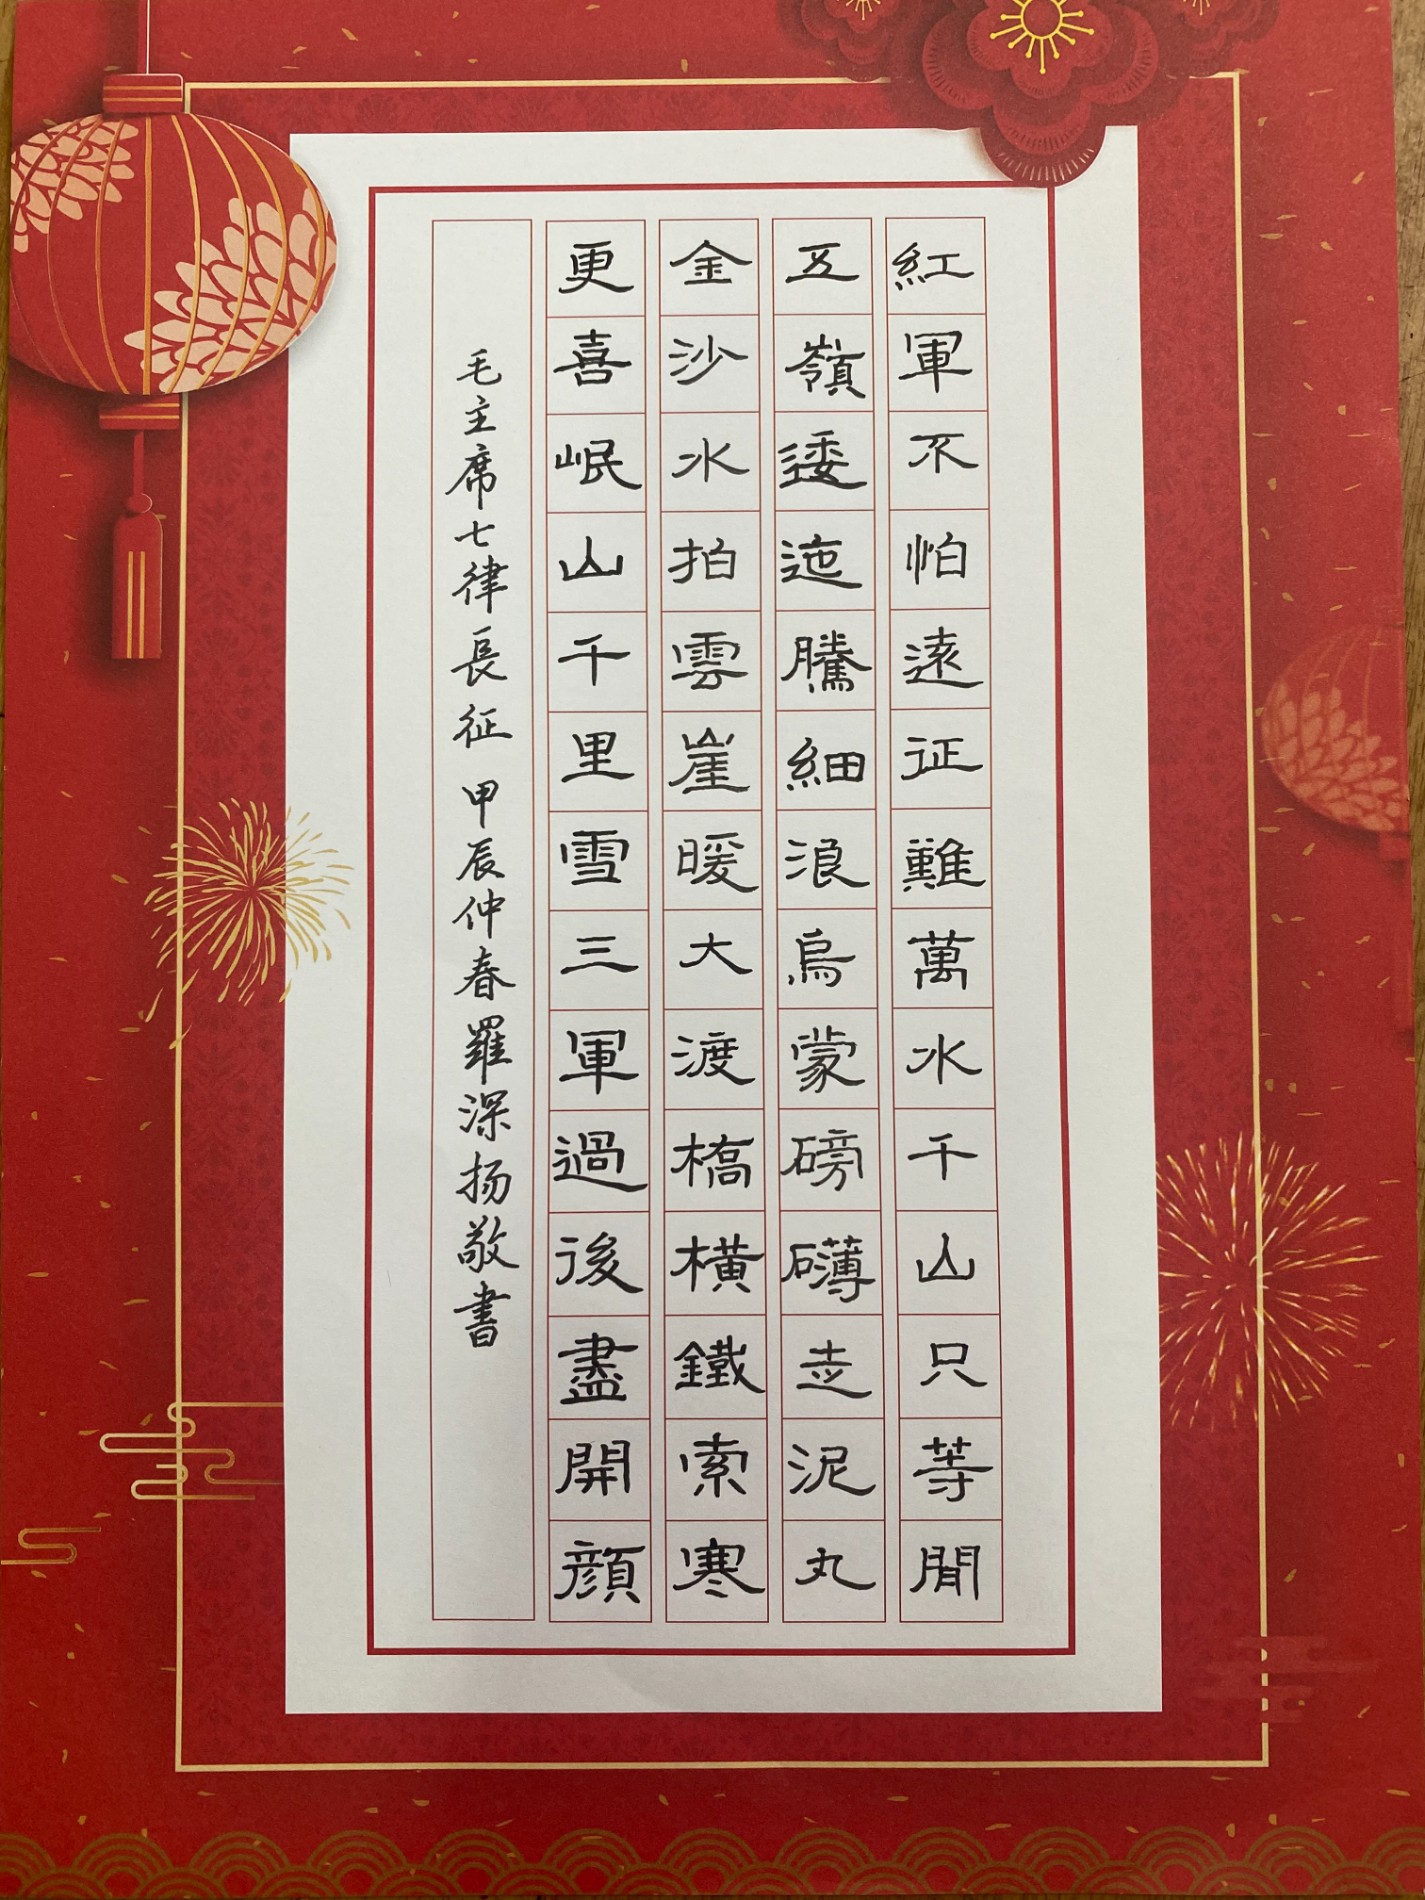 紅軍不怕遠征難萬水千山只等閒
五嶺逶迤騰細浪烏蒙磅礴走泥丸
金沙水拍雲崖暖大渡橋橫鐵索寒
更喜岷山千里雪三軍過後盡開顔
毛主席七律長征 甲辰仲春羅深扬敬書